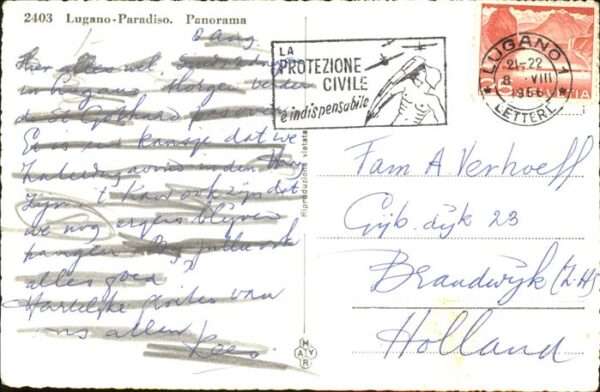 2403 Lugano-Paradiso. Panorama
8 Aug
Hier alles wel.
in Lugano Morgen verder
door Gotthard
Er is een kans dat we
Zaterdagavond
zijn 't Kan ook zijn dat
we nog ergens blijven
jullie ook
alles goed?
Hartelijke groeten van
ons allen
Kees
LA
PROTEZIONE
CIVILE
è indispensabile
LUGANO 1
21-22
8 VIII
1956
LETTERE
HELVETIA
Riproduzione vietata
Fam A Verhoeff
Gijb. dyk 23
Brandwijk (Z.H.)
Holland